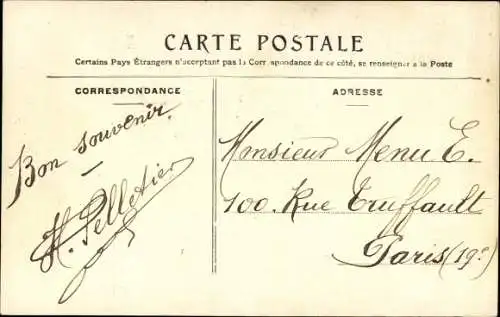 CARTE POSTALE
Certains Pays Étrangers n'acceptant pas la Corr spondance de ce côté, se renseigner à la Poste
CORRESPONDANCE
ADRESSE
Bon souvenir.
H. Pelletier
Monsieur Menu E.
100. Rue Truffault
Paris (19e